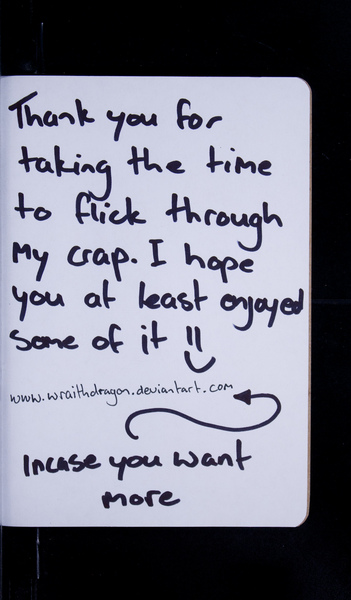 Thank you for
taking the time
to flick through
My crap. I hope
you at least enjoyed
some of it !!
www.wraithdragon.deviantart.com
Incase you want
more